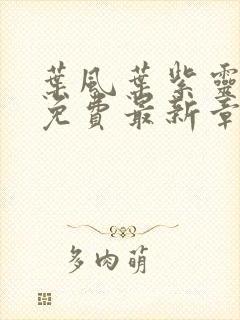 葉風葉紫靈
免費最新章
多肉萌